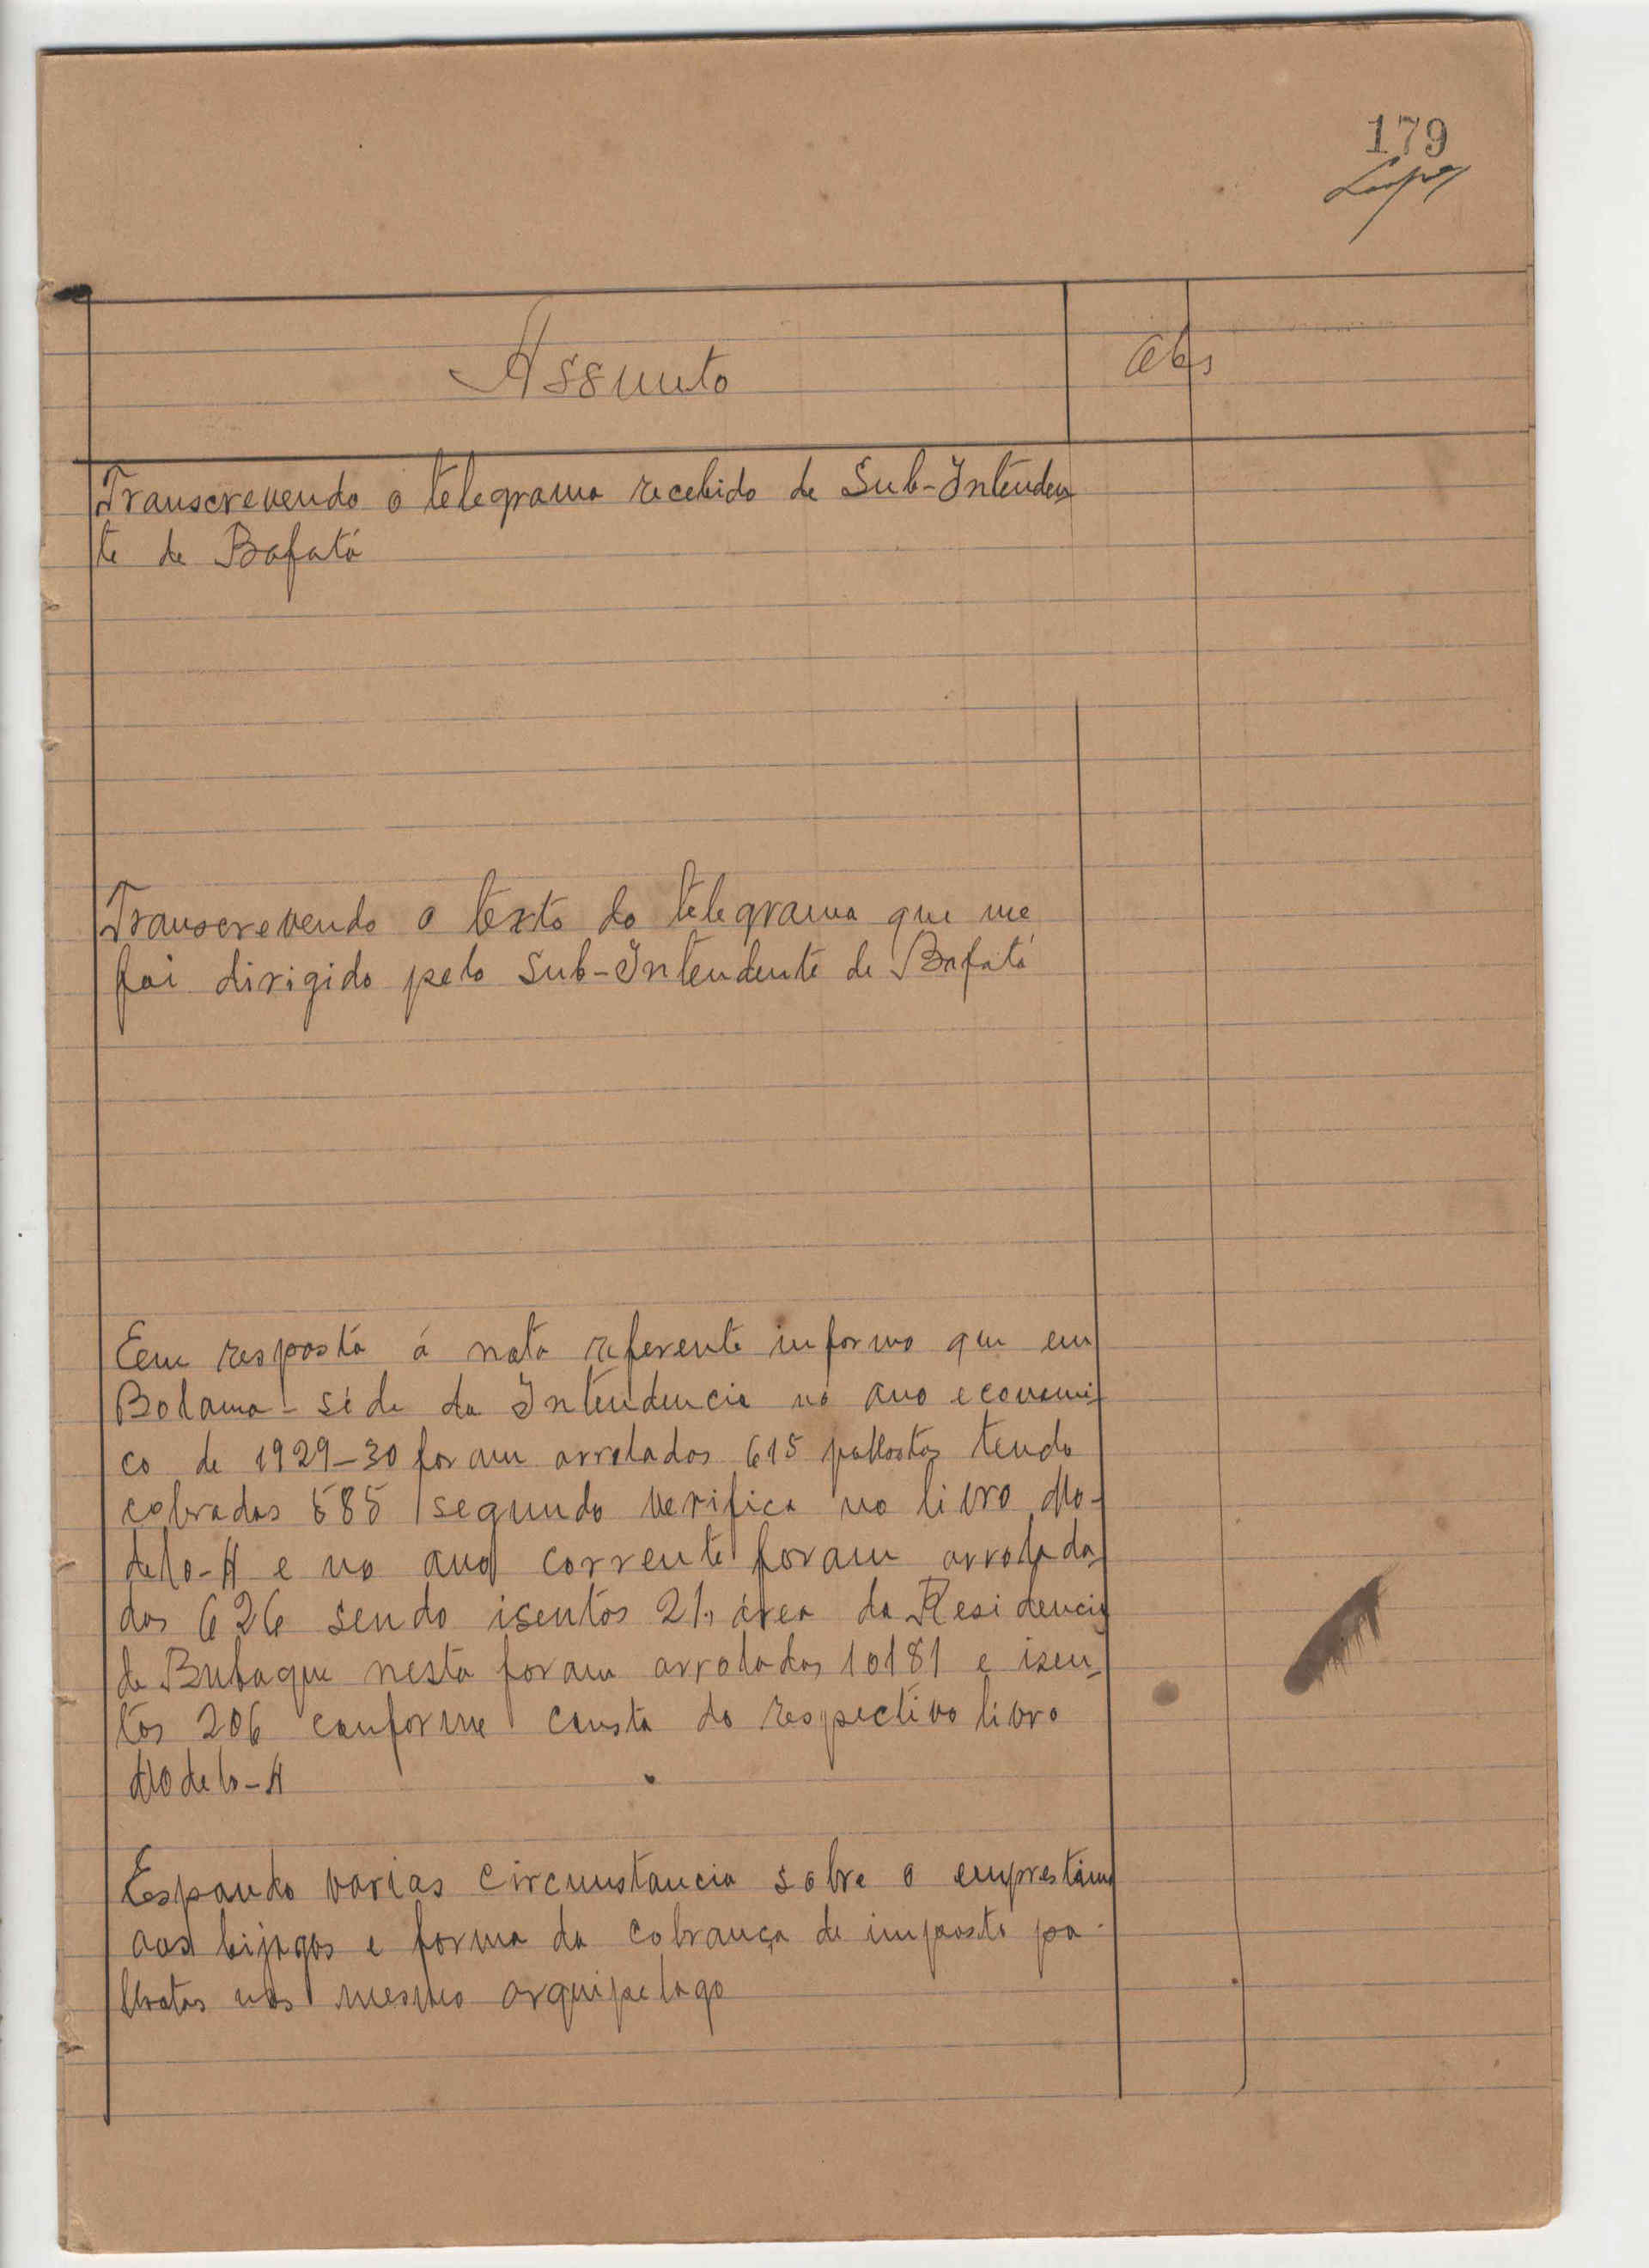 179
Lopes
Assunto
Obs
Transcrevendo o telegrama recebido de Sub-Intenden
te de Bafatá
Transcrevendo o texto do telegrama que me
foi dirigido pelo Sub-Intendente de Bafatá
Em resposta á nota referente informo que em
Bolama - séde da Intendencia no ano economi-
co de 1929-30 foram arrolados 615 palhotas tendo
cobradas 585 segundo verifica no livro Mo-
delo-A e no ano corrente foram arrolada
das 626 sendo isentos 21, área da Residencia
de Bubaque nesta foram arroladas 10181 e isen-
tos 206 conforme consta do respectivo livro
Modelo-A
Espondo varias circunstancia sobre o emprestimo
aos bijagos e forma da cobrança de imposto pa-
lhotas nos mesmo arquipelago